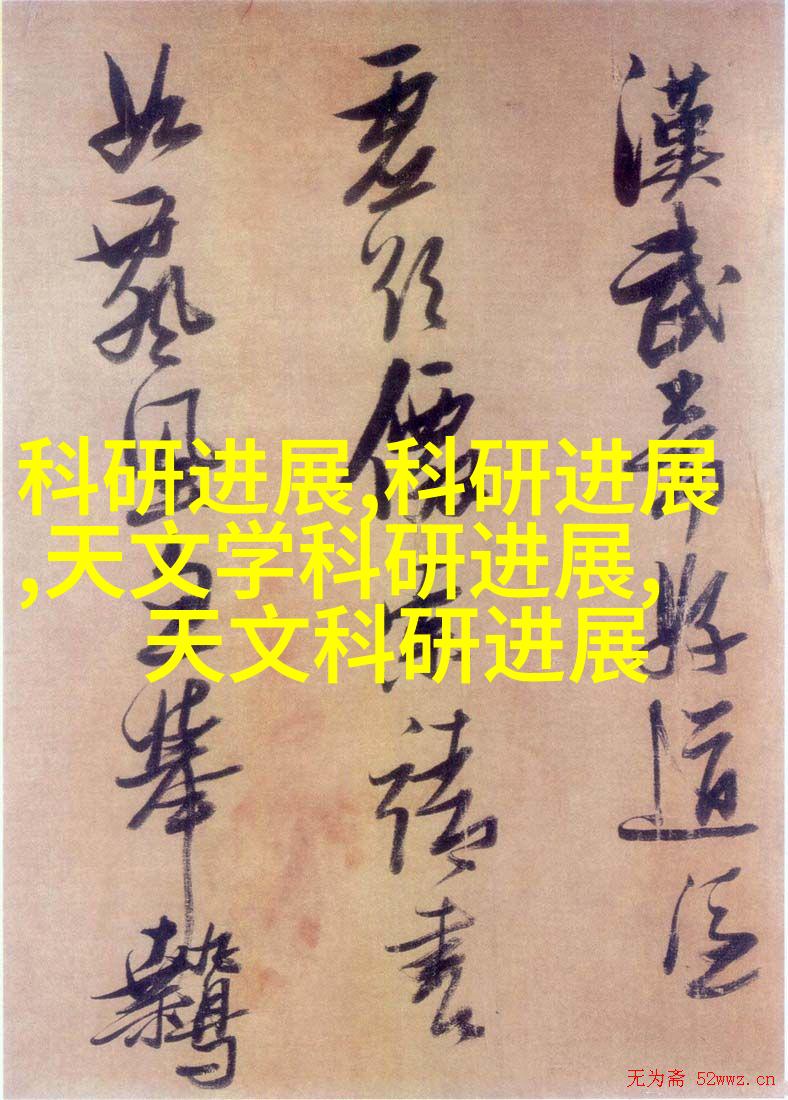 漢武帝好道
虛欲僊書
如飄風舉鷙
科研进展,科研进展
,天文学科研进展,
天文科研进展
无为斋 52wwz.cn